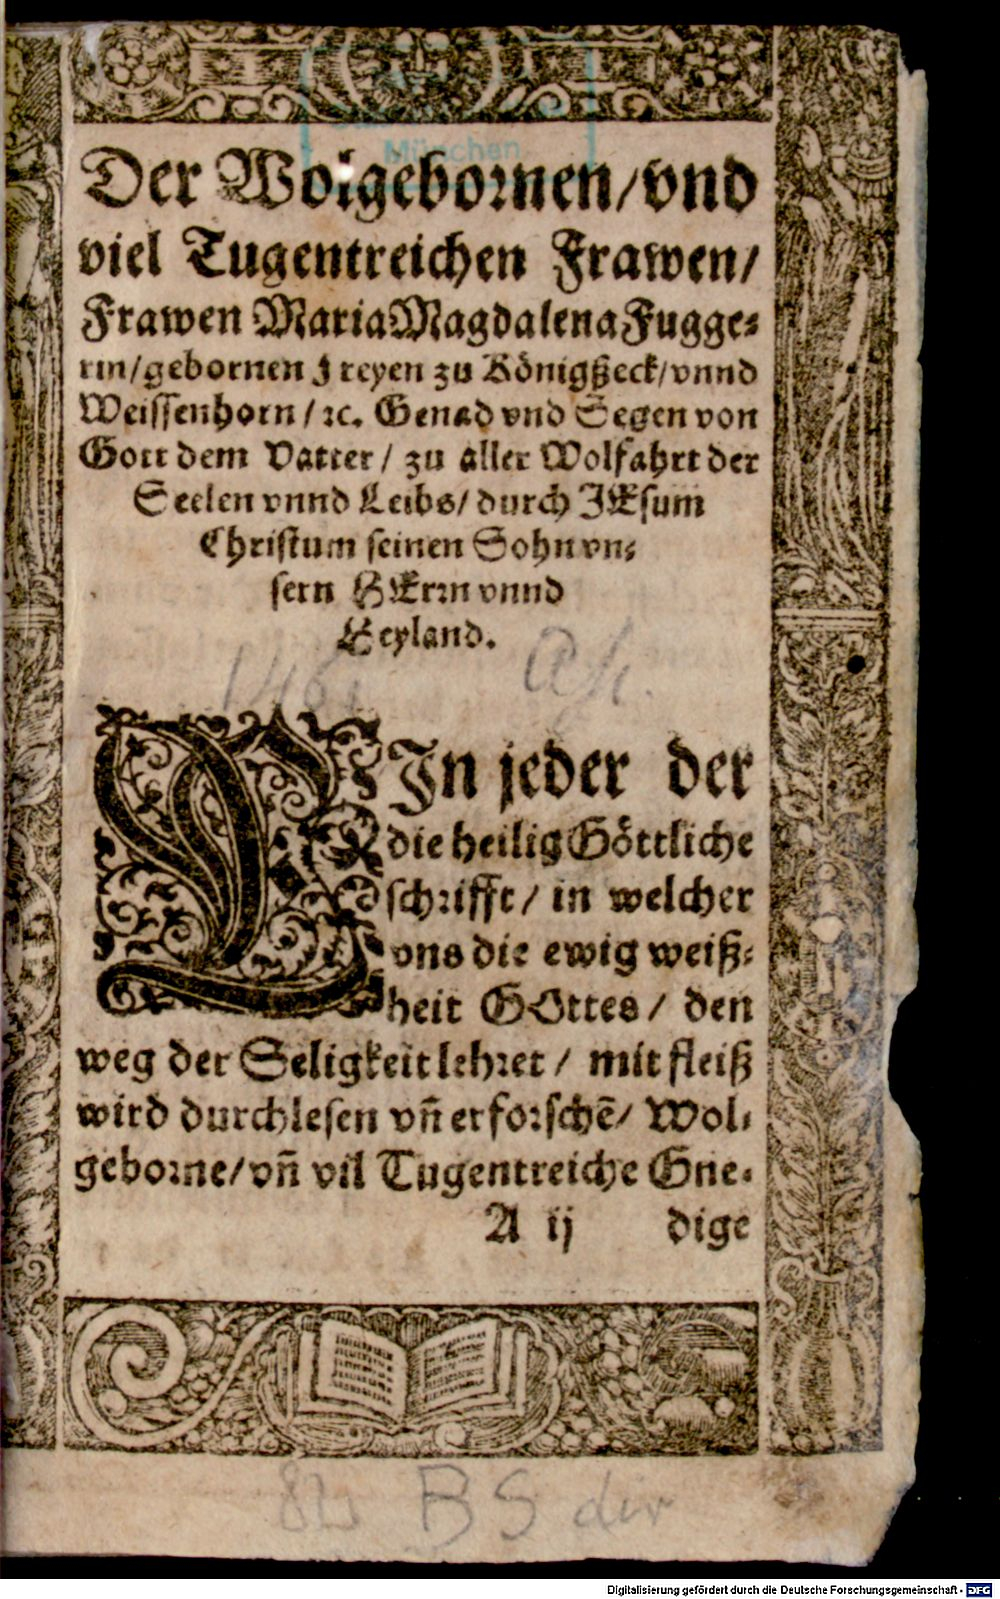 München
Der Wolgebornen/vnd
viel Tugentreichen Frawen/
Frawen Maria Magdalena Fugge⸗
rin/gebornen Freyen zu Königßeck/vnnd
Weissenhorn/ꝛc. Genad vnd Segen von
Gott dem Vatter/ zu aller Wolfahrt der
Seelen vnnd Leibs/ durch JEsum
Christum seinen Sohn vn⸗
sern HErrn vnnd
Heyland.
EJn jeder der
die heilig Göttliche
schrifft/ in welcher
vns die ewig weiß⸗
heit GOttes/ den
weg der Seligkeit lehret/ mit fleiß
wird durchlesen vñ erforschẽ/ Wol⸗
geborne/vñ vil Tugentreiche Gne⸗
A ij dige
BS
Digitalisierung gefördert durch die Deutsche Forschungsgemeinschaft - DFG